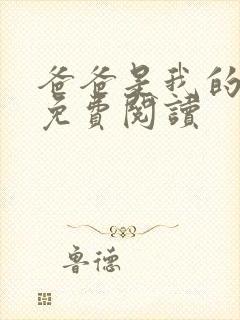 爸爸是我的
免費閱讀
魯德